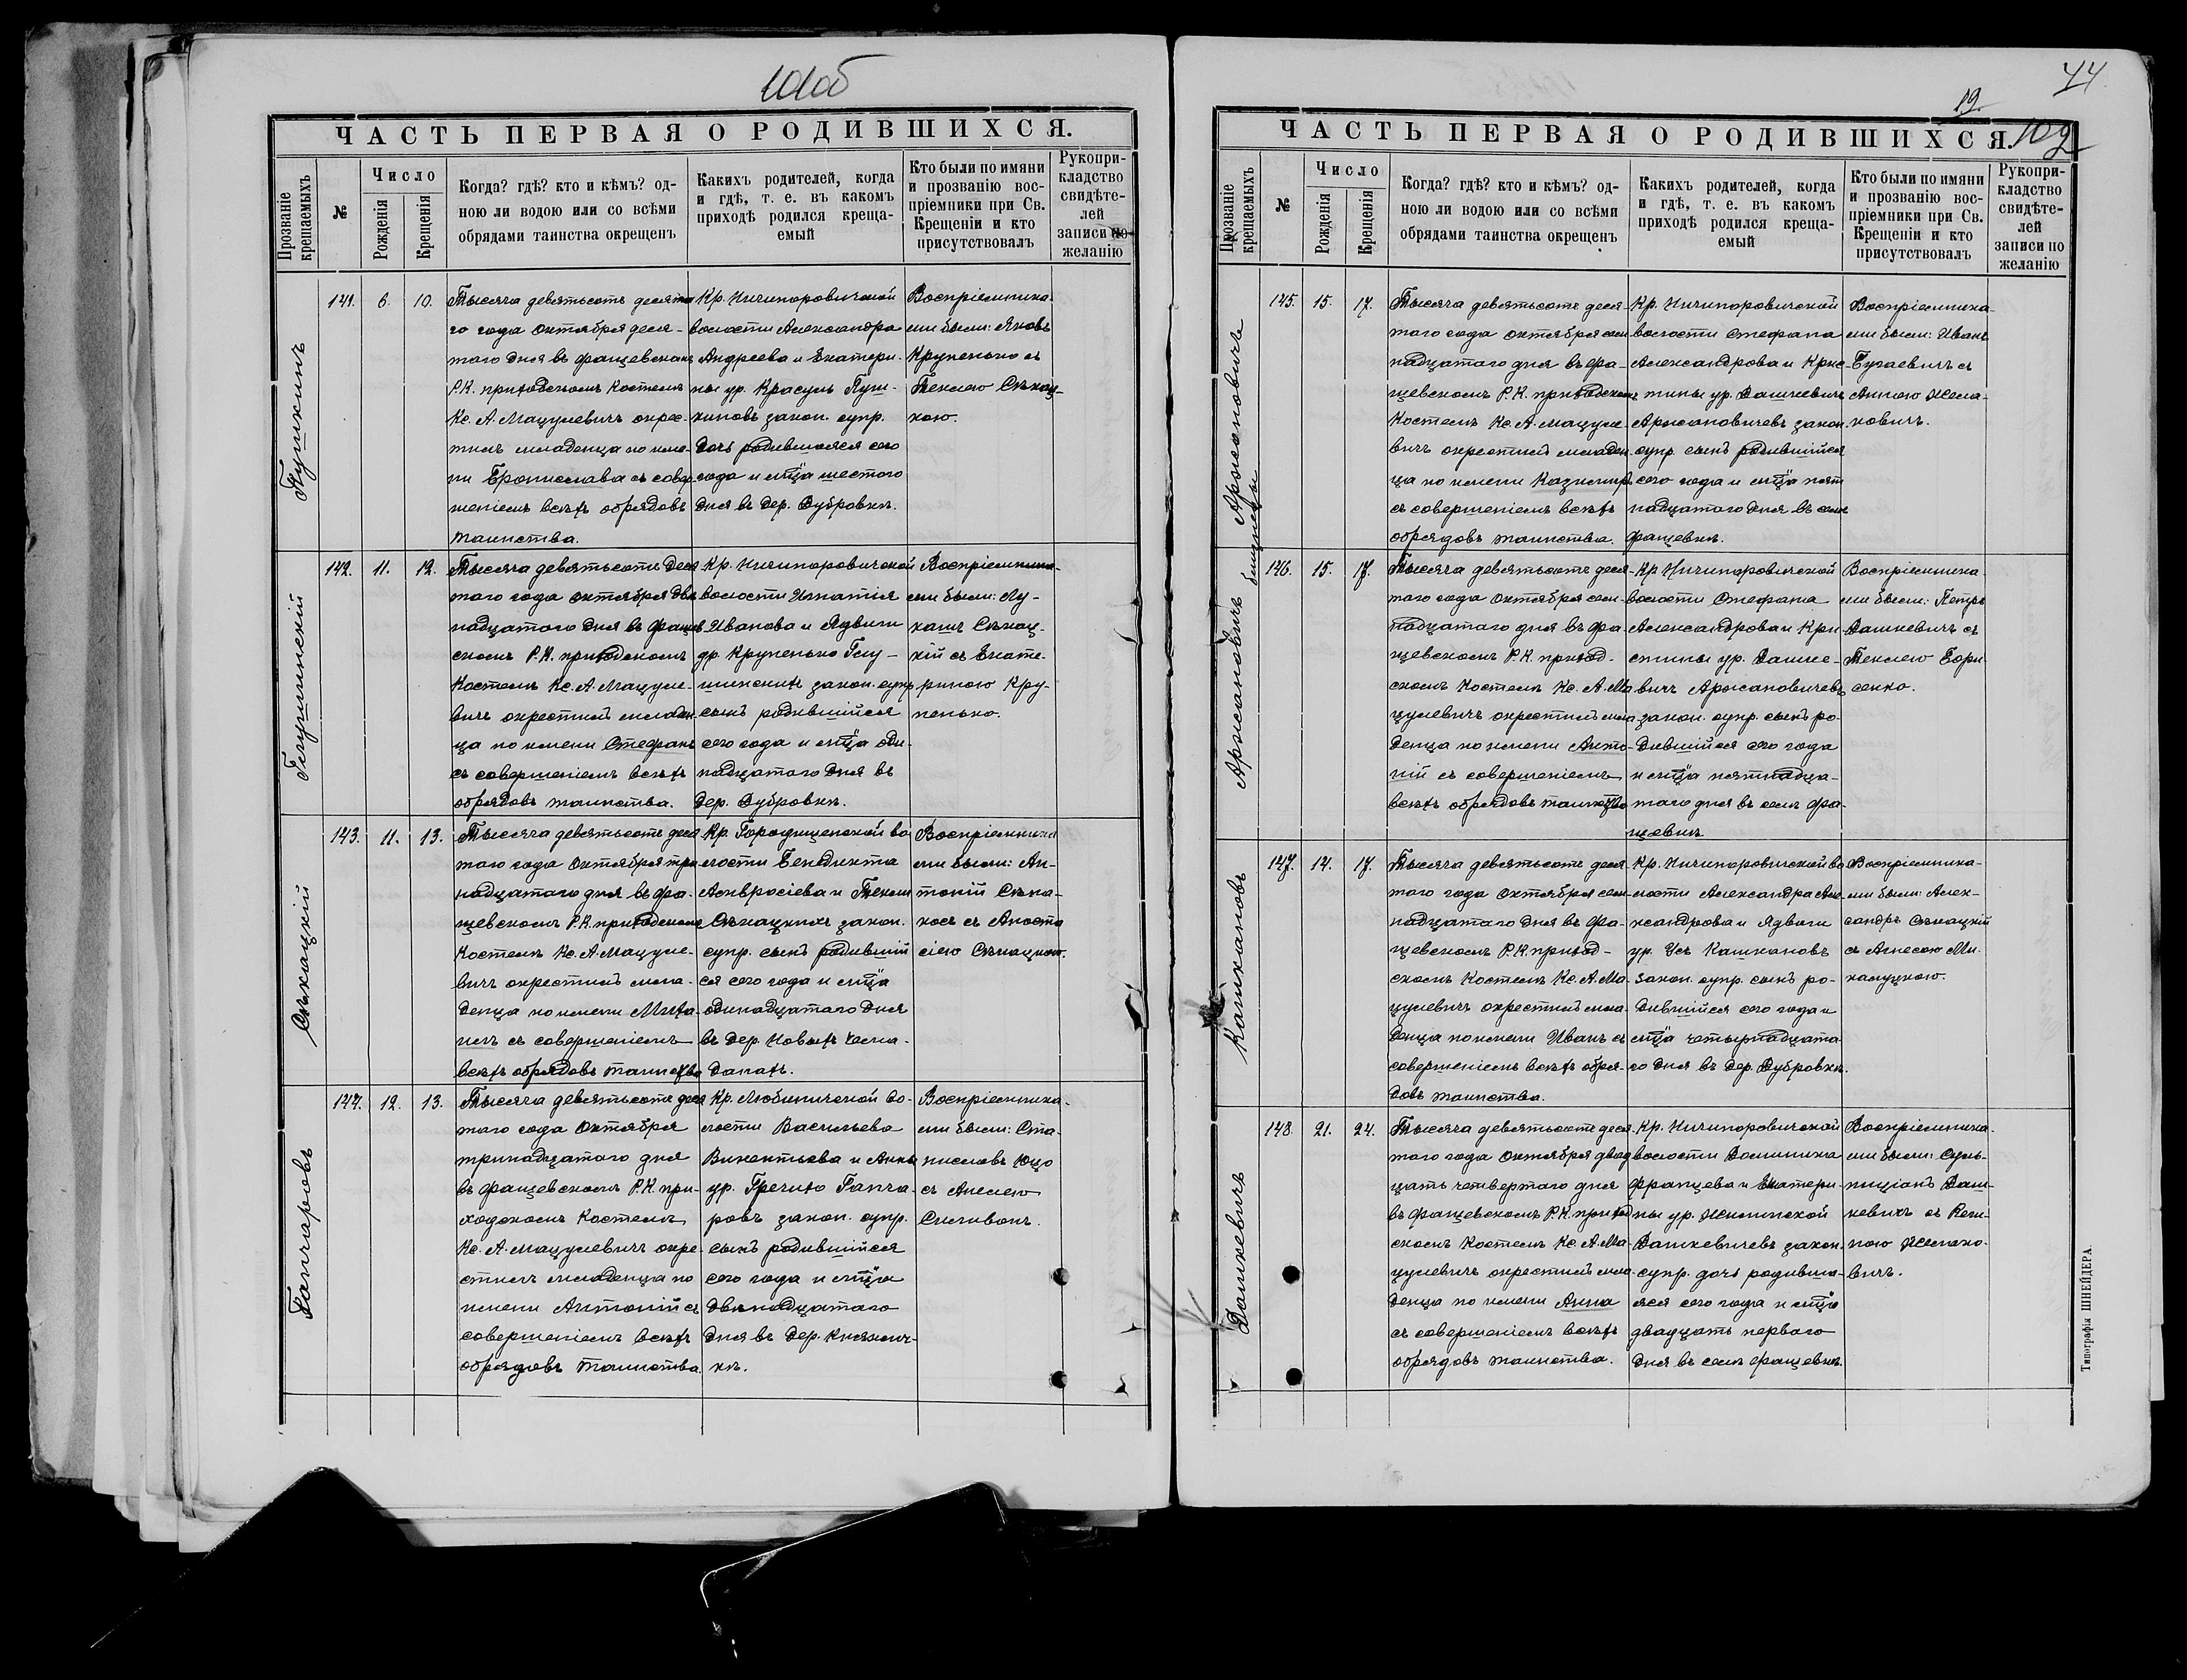 101об
ЧАСТЬ ПЕРВАЯ О РОДИВШИХСЯ.
Прозваніе крещаемыхъ
№
Число
Рожденія
Крещенія
Когда? гдѣ? кто и кѣмъ? од-
ною ли водою или со всѣми
обрядами таинства окрещенъ
Какихъ родителей, когда
и гдѣ, т. е. въ какомъ
приходѣ родился креща-
емый
Кто были по имяни
и прозванію вос-
пріемники при Св.
Крещеніи и кто
присутствовалъ
Рукопри-
кладство
свидѣте-
лей
записи по
желанію
Пушкинъ
141. 6. 10.
Тысяча девятьсотъ десята
го года Октября деся-
таго дня въ Фащевскомъ
Р.К. приходскомъ Костелѣ
Кс. А. Мацулевичъ окрес-
тилъ младенца по име-
ни Брониславa съ совер
шеніемъ всѣхъ обрядовъ
таинства.
Кр. Ничипоровичской
волости Александра
Андреева и Екатери-
ны ур. Красуль Пуш-
киновъ закон. супр.
дочь родившаяся сего
года и мѣсяца шестого
дня въ дер. Дубровкѣ.
Воспріемника-
ми были: Яковъ
Крупенько съ
Теклею Сѣкац-
кою.
142. 11. 12.
Тысяча девятьсотъ деся
таго года Октября две
надцатаго дня въ Фащев
скомъ Р.К. приходскомъ
Костелѣ Кс. А. Мацуле-
вичъ окрестилъ младен
ца по имени Стефанъ
съ совершеніемъ всѣхъ
обрядовъ таинства.
Кр. Ничипоровичской
волости Игнатія
Иванова и Ядвиги
ур. Крупенько
закон. супр
сынъ родившійся
сего года и мца оди-
надцатаго дня въ
дер. Дубровкѣ.
Воспріемника-
ми были: Лу-
кашъ Сѣкац-
кій съ Екате-
риною Кру-
пенько.
Сѣкацкій
143. 11. 13.
Тысяча девятьсотъ деся
таго года Октября три
надцатаго дня въ Фа-
щевскомъ Р.К. приходскомъ
Костелѣ Кс. А. Мацуле-
вичъ окрестилъ мла-
денца по имени Миха-
илъ съ совершеніемъ
всѣхъ обрядовъ таинства
Кр. Городищенской во
лости Бенедикта
Амвросіева и Текли
Сѣкацкихъ закон.
супр. сынъ родившій
ся сего года и мца
одинадцатаго дня
въ дер. Новыхъ Чема-
данахъ.
Воспріемника
ми были: Ан-
тоній Сѣка-
ко съ Анаста
сіею Сѣкацкою.
Ганчаровъ
144. 12. 13.
Тысяча девятьсотъ деся
таго года Октября
тринадцатаго дня
въ Фащевскомъ Р.К. при-
ходскомъ Костелѣ
Кс. А. Мацулевичъ окре-
стилъ младенца по
имени Антоній съ
совершеніемъ всѣхъ
обрядовъ таинства.
Кр. Любиничской во-
лости Васильева
Викентьева и Анны
ур. Гречихо Ганча-
ровъ закон. супр.
сынъ родившійся
сего года и мца
двѣнадцатаго
дня въ дер. Княжи-
кѣ.
Воспріемника-
ми были: Ста-
ниславъ Юцо
съ Анелею
44.
19.
102
ЧАСТЬ ПЕРВАЯ О РОДИВШИХСЯ.
Прозваніе крещаемыхъ
№
Число
Рожденія
Крещенія
Когда? гдѣ? кто и кѣмъ? од-
ною ли водою или со всѣми
обрядами таинства окрещенъ
Какихъ родителей, когда
и гдѣ, т. е. въ какомъ
приходѣ родился креща-
емый
Кто были по имяни
и прозванію вос-
пріемники при Св.
Крещеніи и кто
присутствовалъ
Рукопри-
кладство
свидѣте-
лей
записи по
желанію
Аржановичъ
близнецы
145. 15. 17.
Тысяча девятьсотъ деся-
таго года Октября сем
надцатаго дня въ Фа-
щевскомъ Р.К. приходскомъ
Костелѣ Кс. А. Мацуле-
вичъ окрестилъ младен
ца по имени Казимиръ
съ совершеніемъ всѣхъ
обрядовъ таинства.
Кр. Ничипоровичской
волости Стефана
Александрова и Крис-
тины ур. Дашкевичъ
Аржановичевъ закон.
супр. сынъ родившійся
сего года и мца пят
надцатаго дня въ селѣ
Фащевкѣ.
Воспріемника-
ми были: Иванъ
Бугаевичъ съ
Анною Жема-
ковичъ.
Аржановичъ
146. 15. 17.
Тысяча девятьсотъ деся-
таго года Октября сем-
надцатаго дня въ Фа
щевскомъ Р.К. приход-
скомъ Костелѣ Кс. А. Ма
цулевичъ окрестилъ мла
денца по имени Анто-
ній съ совершеніемъ
всѣхъ обрядовъ таинства
Кр. Ничипоровичской
волости Стефана
Александрова и Кри
стины ур. Дашке-
вичъ Аржановичевъ
закон. супр. сынъ ро-
дившійся сего года
и мца пятнадца-
таго дня въ селѣ Фа-
щевкѣ
Воспріемника-
ми были: Петръ
Дашкевичъ съ
Теклею Бори-
сенко.
Кашкановъ
147. 14. 17.
Тысяча девятьсотъ деся
таго года Октября сем-
надцатаго дня въ Фа-
щевскомъ Р.К. приход-
скомъ Костелѣ Кс. А. Ма-
цулевичъ окрестилъ мла-
денца по имени Иванъ съ
совершеніемъ всѣхъ обря-
довъ таинства.
Кр. Ничипоровичской во
лости Александра Але
ксандрова и Ядвиги
ур. Усъ Кашкановъ
закон. супр. сынъ ро-
дившійся сего года и
мца четырнадцата
го дня въ дер. Дубровкѣ.
Воспріемника-
ми были: Алек-
сандръ Сѣкацкій
съ Агнесою Ми-
калуцкою.
Дашкевичъ
148. 21. 24.
Тысяча девятьсотъ деся-
таго года Октября двад
цать четвертаго дня
въ Фащевскомъ Р.К. приход
скомъ Костелѣ Кс. А. Ма-
цулевичъ окрестилъ мла-
денца по имени Анна
съ совершеніемъ всѣхъ
обрядовъ таинства.
Кр. Ничипоровичской
волости Доминика
Францева и Екатери-
ны ур. Жилинской
Дашкевичевъ закон.
супр. дочь родивша-
яся сего года и мца
двадцать перваго
дня въ селѣ Фащевкѣ.
Воспріемника-
ми были: Суль-
пиціанъ Даш-
кевичъ съ Реги-
ною Жемако-
вичъ.
Типографія ШНЕЙДЕРА.